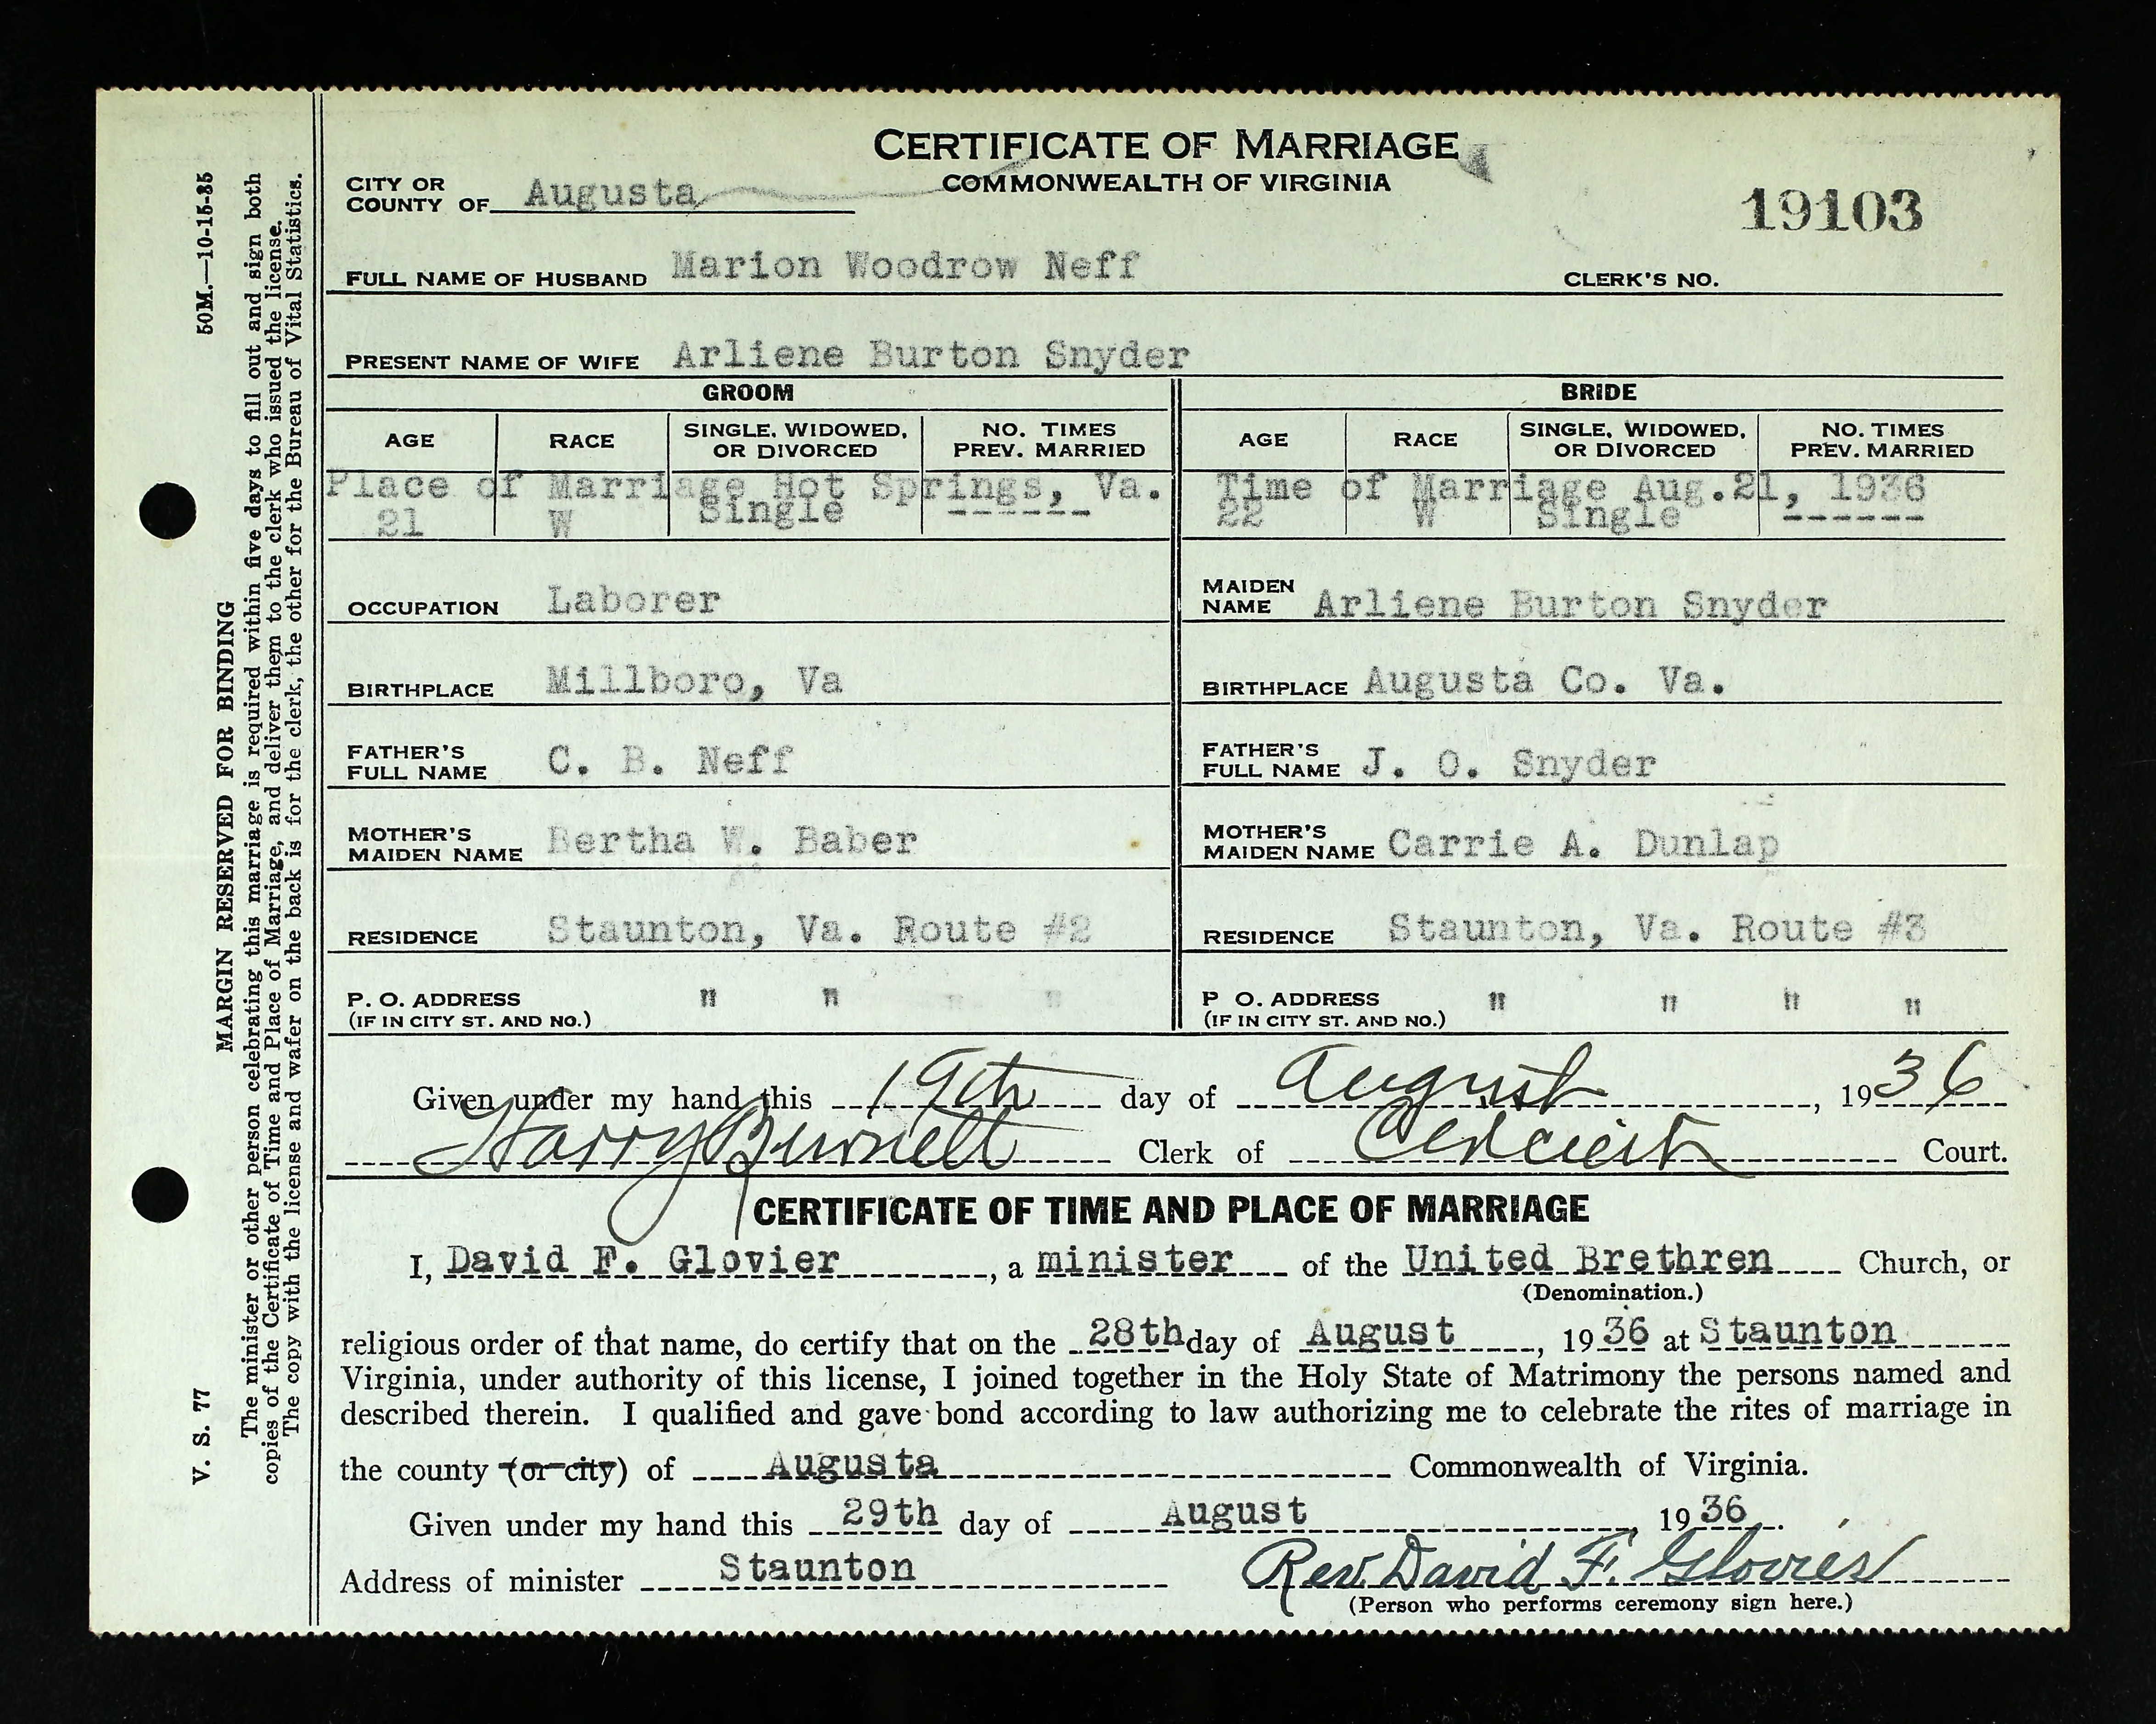 CERTIFICATE OF MARRIAGE
COMMONWEALTH OF VIRGINIA
CITY OR
COUNTY OF Augusta
19103
FULL NAME OF HUSBAND Marion Woodrow Neff CLERK'S NO.
PRESENT NAME OF WIFE Arliene Burton Snyder
GROOM BRIDE
AGE RACE SINGLE, WIDOWED, OR DIVORCED NO. TIMES PREV. MARRIED AGE RACE SINGLE, WIDOWED, OR DIVORCED NO. TIMES PREV. MARRIED
Place of Marriage Hot Springs, Va. Time of Marriage Aug.21, 1936
21 W Single ------ 22 W Single ------
OCCUPATION Laborer MAIDEN NAME Arliene Burton Snyder
BIRTHPLACE Millboro, Va BIRTHPLACE Augusta Co. Va.
FATHER'S FULL NAME C. B. Neff FATHER'S FULL NAME J. O. Snyder
MOTHER'S MAIDEN NAME Bertha W. Baber MOTHER'S MAIDEN NAME Carrie A. Dunlap
RESIDENCE Staunton, Va. Route #2 RESIDENCE Staunton, Va. Route #3
P. O. ADDRESS " " " " P O. ADDRESS " " " "
(IF IN CITY ST. AND NO.) (IF IN CITY ST. AND NO.)
Given under my hand this 19th day of August, 1936
Harry Burnett Clerk of Circuit Court.
CERTIFICATE OF TIME AND PLACE OF MARRIAGE
I, David F. Glovier, a minister of the United Brethren Church, or
(Denomination.)
religious order of that name, do certify that on the 28th day of August, 1936 at Staunton
Virginia, under authority of this license, I joined together in the Holy State of Matrimony the persons named and
described therein. I qualified and gave bond according to law authorizing me to celebrate the rites of marriage in
the county (or city) of Augusta Commonwealth of Virginia.
Given under my hand this 29th day of August, 1936.
Address of minister Staunton Rev. David F. Glovier
(Person who performs ceremony sign here.)
V. S. 77 MARGIN RESERVED FOR BINDING 50M.—10-15-35
The minister or other person celebrating this marriage is required within five days to fill out and sign both
copies of the Certificate of Time and Place of Marriage, and deliver them to the clerk who issued the license.
The copy with the license and wafer on the back is for the clerk, the other for the Bureau of Vital Statistics.